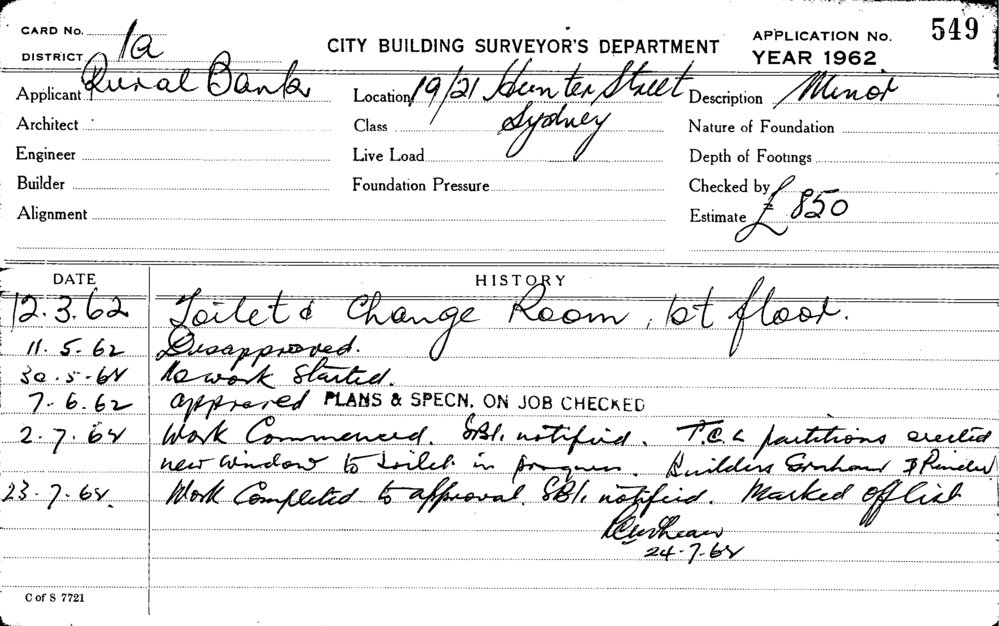 CARD No.
DISTRICT 1a
CITY BUILDING SURVEYOR'S DEPARTMENT
APPLICATION No. 549
YEAR 1962
Applicant Rural Bank
Location 19/21 Hunter Street
Sydney
Description Minor
Architect
Class
Nature of Foundation
Engineer
Live Load
Depth of Footings
Builder
Foundation Pressure
Checked by
Alignment
Estimate £ 850
DATE HISTORY
12.3.62 Toilet & Change Room, 1st floor.
11.5.62 Disapproved.
30.5.62 No work started.
7.6.62 approved PLANS & SPECN. ON JOB CHECKED
2.7.62 Work Commenced. SBI. notified. T.C.L partitions erected
new window to toilet in progress. Builders Graham &
23.7.62 Work Completed to approval. SBI. notified. Marked off list
24.7.62
C of S 7721